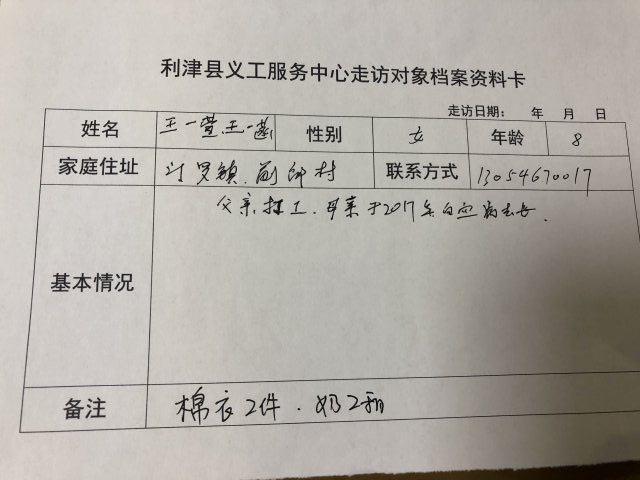 利津县义工服务中心走访对象档案资料卡
走访日期： 年 月 日
姓名 王一萱.王一菡 性别 女 年龄 8
家庭住址 汀罗镇.前 村 联系方式 13054670017
基本情况 父亲打工.母亲于2017年白血病去世.
备注 棉衣2件.奶2